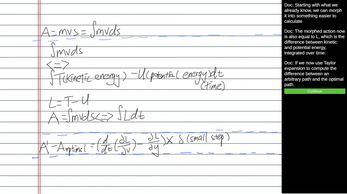 A=mvs=∫mvds
∫mvds
<=>
∫T(kinetic energy)-U(potential energy)dt
(time)
L=T-U
A=∫mvds<=>∫Ldt
A'-Aoptimal=(d/dt(∂L/∂v)-∂L/∂y)×δ(small step)
Doc: Starting with what we
already know, we can morph
it into something easier to
calculate
Doc: The morphed action now
is also equal to L, which is the
difference between kinetic
and potential energy,
integrated over time.
Doc: If we now use Taylor
expansion to compute the
difference between an
arbitrary path and the optimal
path.
Continue